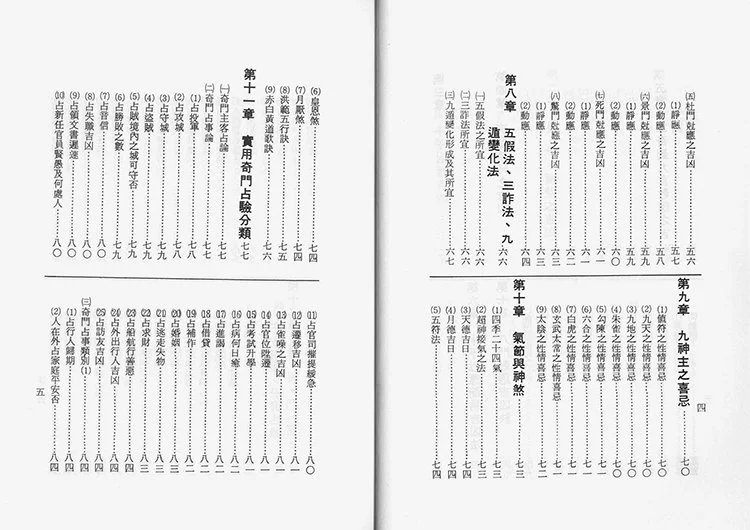 (五)杜門尅應之吉凶……五六
(1)靜應……五七
(2)動應……五八
(六)景門尅應之吉凶……五九
(1)靜應……五九
(2)動應……六〇
(七)死門尅應之吉凶……六一
(1)靜應……六一
(2)動應……六二
(八)驚門尅應之吉凶……六二
(1)靜應……六三
(2)動應……六四
第八章 五假法、三詐法、九
遁變化法……六六
(一)五假法之所宜……六六
(二)三詐法所宜……六六
(三)九遁變化形成及其所宜……六七
第九章 九神主之喜忌……七〇
(1)值符之性情喜忌……七〇
(2)九天之性情喜忌……七〇
(3)九地之性情喜忌……七〇
(4)朱雀之性情喜忌……七〇
(5)勾陳之性情喜忌……七一
(6)六合之性情喜忌……七一
(7)白虎之性情喜忌……七一
(8)玄武太常之性情喜忌……七一
(9)太陰之性情喜忌……七二
第十章 氣節與神煞……七三
(1)四季二十四氣……七三
(2)超神接氣之法……七三
(3)天德吉日……七四
(4)月德吉日……七四
(5)五符法……七四
四
(6)皇恩煞……七四
(7)月厭煞……七四
(8)洪範五行訣……七五
(9)赤白黃道歌訣……七六
第十一章 實用奇門占驗分類……七七
(一)奇門主客占論……七七
(二)奇門占事論……七七
(1)占投軍……七九
(2)占攻城……七九
(3)占守城……七九
(4)占盜賊……七九
(5)占賊境內之城可守否……七九
(6)占勝敗之數……七九
(7)占音信……八〇
(8)占失職吉凶……八〇
(9)占領文書遲速……八〇
(10)占新任官員賢愚及何處人……八〇
(11)占官司擢提緩急……八〇
(12)占遷移吉凶……八一
(13)占雀噪之吉凶……八一
(14)占官位陞遷……八一
(15)占考試升學……八一
(16)占病何日癒……八二
(17)占進謁……八二
(18)占借貸……八二
(19)占補作……八二
(20)占婚姻……八二
(21)占逃走失物……八二
(22)占求財……八三
(23)占船航行善惡……八三
(24)占外出行人吉凶……八三
(25)占訪友吉凶……八四
(三)奇門占事類別(1)……八四
(1)占行人歸期……八四
(2)人在外占家庭平安否……八四
五